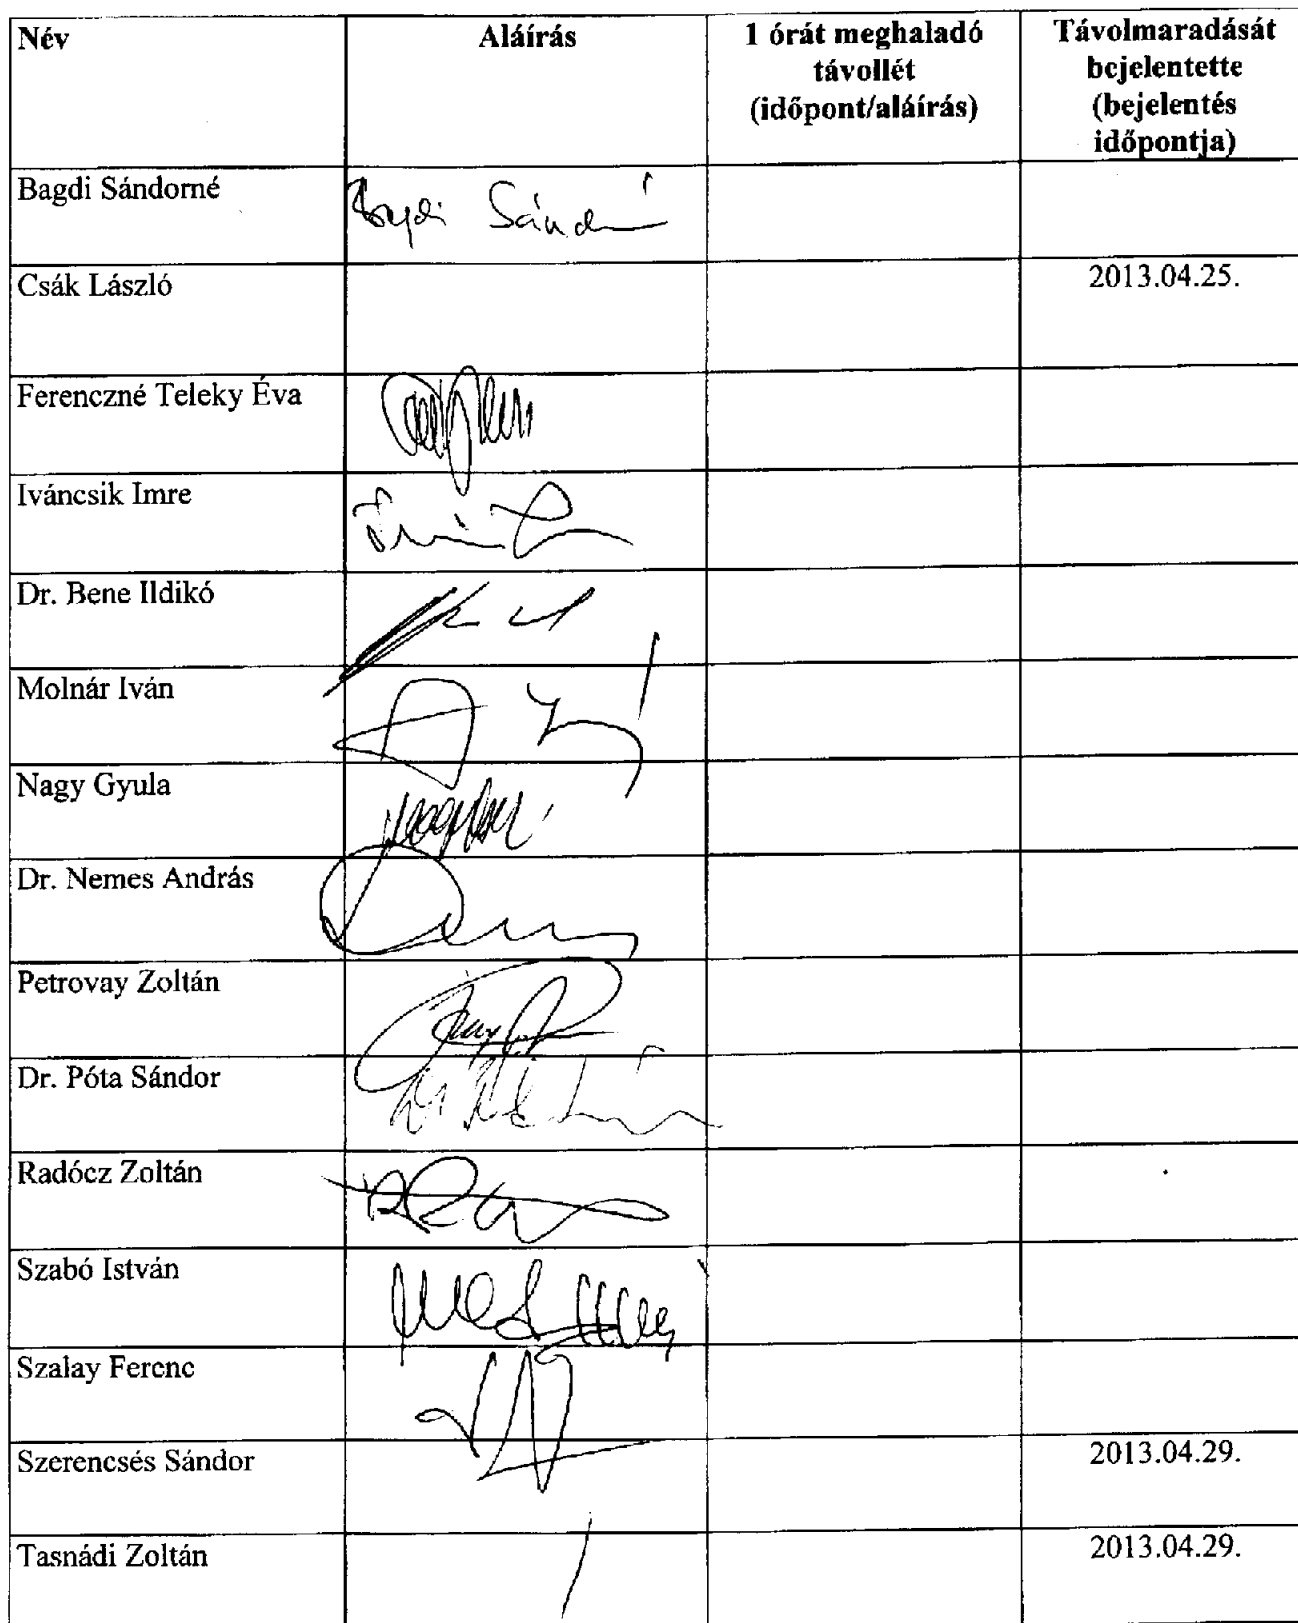 Név
Aláírás
1 órát meghaladó
távollét
(időpont/aláírás)
Távolmaradását
bejelentette
(bejelentés
időpontja)
Bagdi Sándorné
Bagdi Sándorné
Csák László
2013.04.25.
Ferenczné Teleky Éva
Iváncsik Imre
Dr. Bene Ildikó
Molnár Iván
Nagy Gyula
Dr. Nemes András
Petrovay Zoltán
Dr. Póta Sándor
Radócz Zoltán
Szabó István
Szalay Ferenc
Szerencsés Sándor
2013.04.29.
Tasnádi Zoltán
2013.04.29.